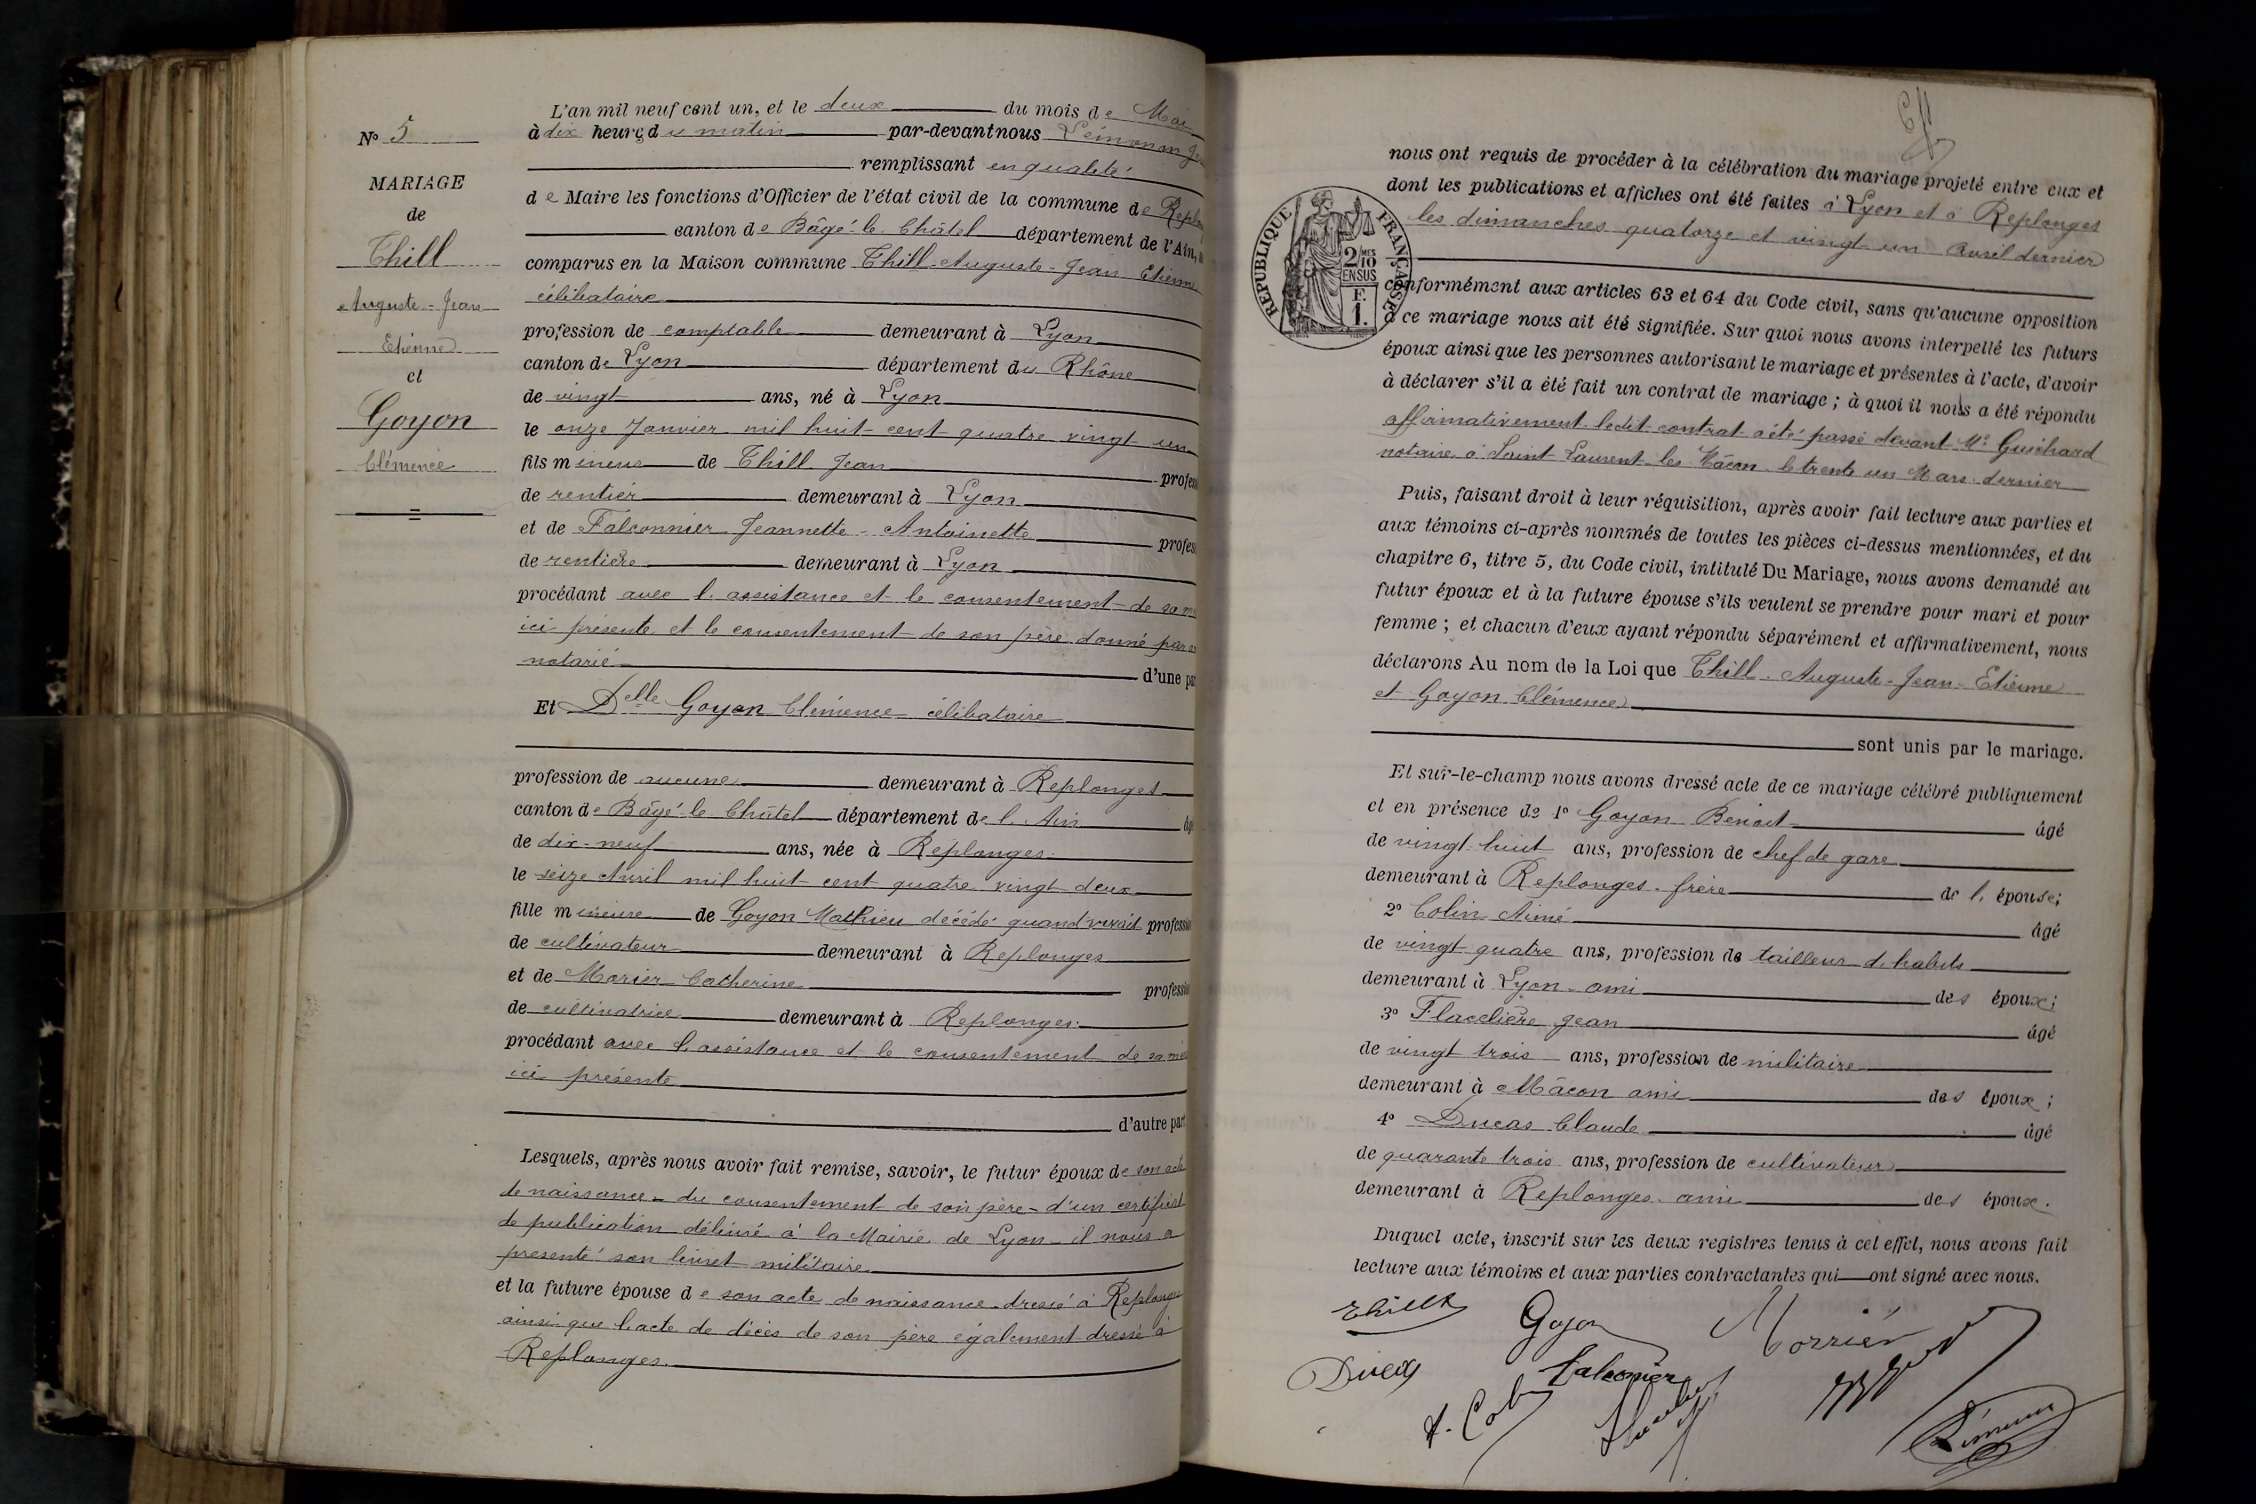 N° 5
MARIAGE
de
Thill
Auguste-Jean
Etienne
et
Goyon
Clémence
L'an mil neuf cent un, et le deux du mois de Mai
à dix heures du matin par-devant nous
remplissant en qualité
de Maire les fonctions d'Officier de l'état civil de la commune de
canton de Bâgé-le-Châtel département de l'Ain,
comparus en la Maison commune Thill Auguste-Jean Etienne
célibataire
profession de comptable demeurant à Lyon
canton de Lyon département du Rhône
de vingt ans, né à Lyon
le onze Janvier mil huit cent quatre vingt un
fils mineur de Thill Jean
de rentier demeurant à Lyon
et de Falconnier Jeannette-Antoinette
de rentière demeurant à Lyon
procédant avec l'assistance et le consentement de sa
ici présente et le consentement de son père donné par
notarié d'une
Et Delle Goyon Clémence célibataire
profession de aucune demeurant à Replonges
canton de Bâgé-le-Châtel département de l'Ain
de dix-neuf ans, née à Replonges
le seize Avril mil huit cent quatre vingt deux
fille mineure de Goyon Mathieu décédé quand vivait
de cultivateur demeurant à Replonges
et de Morier Catherine
de cultivatrice demeurant à Replonges
procédant avec l'assistance et le consentement de sa
ici présente
d'autre part
Lesquels, après nous avoir fait remise, savoir, le futur époux de son acte
de naissance - du consentement de son père - d'un certificat
de publication délivré à la Mairie de Lyon - il nous a
présenté son livret militaire
et la future épouse de son acte de naissance dressé à Replonges
ainsi que l'acte de décès de son père également dressé à
Replonges.
nous ont requis de procéder à la célébration du mariage projeté entre eux et
dont les publications et affiches ont été faites à Lyon et à Replonges
les dimanches quatorze et vingt un avril dernier
REPUBLIQUE FRANÇAISE
2/10 MES
EN SUS
F.
1.
conformément aux articles 63 et 64 du Code civil, sans qu'aucune opposition
à ce mariage nous ait été signifiée. Sur quoi nous avons interpellé les futurs
époux ainsi que les personnes autorisant le mariage et présentes à l'acte, d'avoir
à déclarer s'il a été fait un contrat de mariage ; à quoi il nous a été répondu
affirmativement ledit contrat a été passé devant Me Guichard
notaire à Saint Laurent-les-Mâcon le trente un Mars dernier
Puis, faisant droit à leur réquisition, après avoir fait lecture aux parties et
aux témoins ci-après nommés de toutes les pièces ci-dessus mentionnées, et du
chapitre 6, titre 5, du Code civil, intitulé Du Mariage, nous avons demandé au
futur époux et à la future épouse s'ils veulent se prendre pour mari et pour
femme ; et chacun d'eux ayant répondu séparément et affirmativement, nous
déclarons Au nom de la Loi que Thill Auguste-Jean-Etienne
et Goyon Clémence
sont unis par le mariage.
Et sur-le-champ nous avons dressé acte de ce mariage célébré publiquement
et en présence de 1° Goyon Benoit âgé
de vingt huit ans, profession de chef de gare
demeurant à Replonges frère de l'épouse;
2° Colin Aimé âgé
de vingt quatre ans, profession de tailleur d'habits
demeurant à Lyon ami des époux;
3° Flacelière Jean âgé
de vingt trois ans, profession de militaire
demeurant à Mâcon ami des époux ;
4° Ducas Claude âgé
de quarante trois ans, profession de cultivateur
demeurant à Replonges ami des époux.
Duquel acte, inscrit sur les deux registres tenus à cet effet, nous avons fait
lecture aux témoins et aux parties contractantes qui ont signé avec nous.
Thill Goyon Morrier
Falconnier
A. Colin